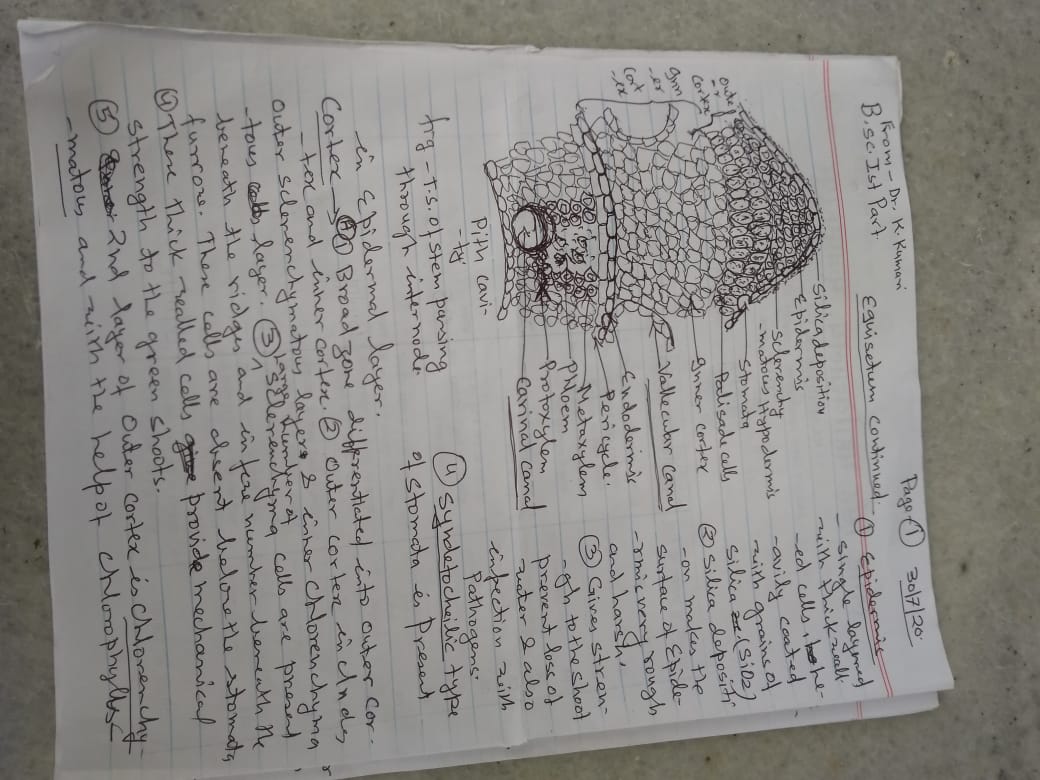 Page ① 30/7/20.
From - Dr. K. Kumari
B.Sc. Ist Part
Equisetum continued
Silica deposition
Epidermis
Sclerenchy-
-matous Hypodermis
Stomata
Palisade cells
Inner cortex
Vallecular canal
Endodermis
Pericycle.
Metaxylem
Phloem
Protoxylem
Carinal canal
Out
-er
cortex
Inn
-er
Cort
-ex
Pith cavi-
-ty
Fig - T.S. of stem passing
through internode.
① Epidermis
- single layered
with thick wall-
-ed cells, he-
-avily coated
with grains of
silica (SiO2)
② Silica depositi-
-on makes the
surface of Epide-
-rmis very rough
and harsh,
③ Gives stren-
-gth to the shoot
prevent loss of
water & also
infection with
Pathogens.
④ Syndetocheilic type
of Stomata is present
in Epidermal layer.
Cortex → ① Broad zone differentiated into outer cor-
-tex and inner cortex. ② Outer cortex includes
outer sclerenchymatous layers & inner chlorenchyma
-tous layer. ③ Large Number of Sclerenchyma cells are present
beneath the ridges and in few number beneath the
furrows. These cells are absent below the stomata
④ These thick walled cells provide mechanical
strength to the green shoots.
⑤ 2nd layer of outer cortex is chlorenchy-
-matous and with the help of chlorophylls